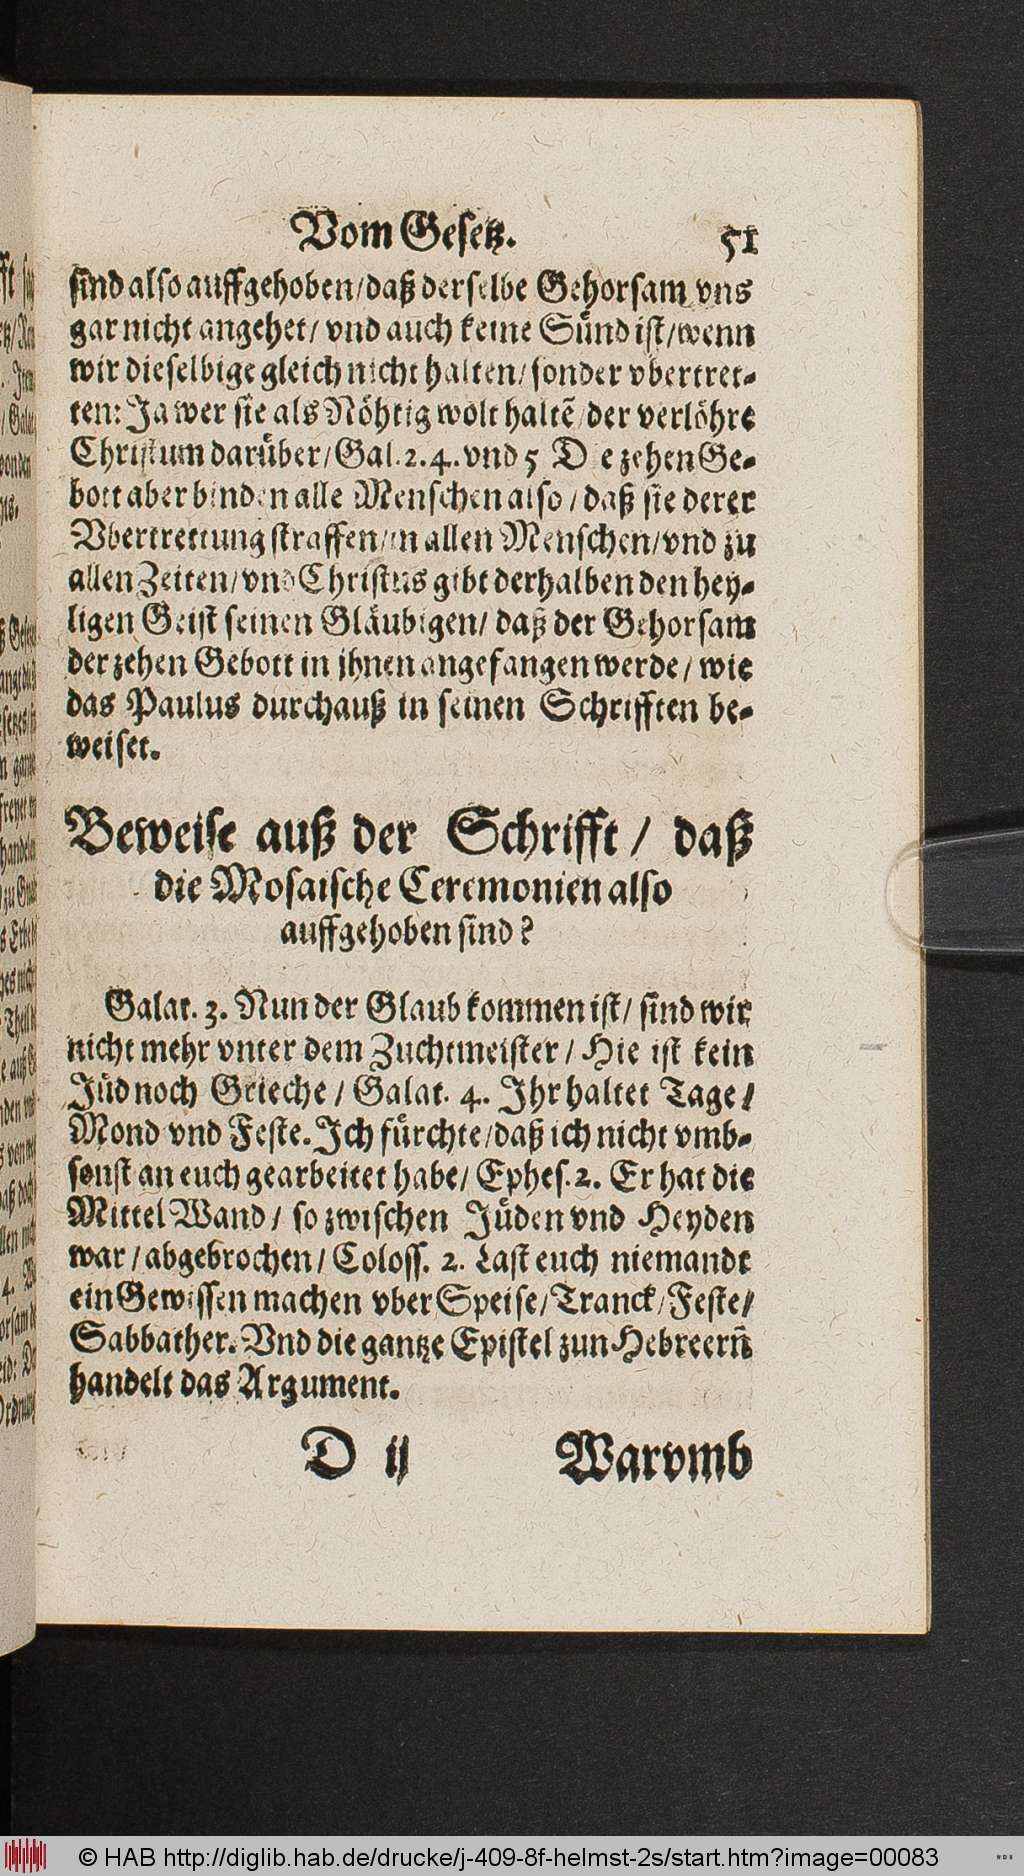 Vom Gesetz. 51
sind also auffgehoben/daß derselbe Gehorsam vns
gar nicht angehet/ vnd auch keine Sünd ist/wenn
wir dieselbige gleich nicht halten/sonder vbertret-
ten: Ja wer sie als Nöhtig wolt haltẽ/der verlöhre
Christum darüber/Gal. 2. 4. vnd 5 D e zehen Ge-
bott aber binden alle Menschen also/daß sie derer
Vbertrettung straffen/in allen Menschen/vnd zu
allen Zeiten/vnd Christus gibt derhalben den hey-
ligen Geist seinen Gläubigen/ daß der Gehorsam
der zehen Gebott in jhnen angefangen werde/ wie
das Paulus durchauß in seinen Schrifften be-
weiset.
Beweise auß der Schrifft/ daß
die Mosaische Ceremonien also
auffgehoben sind?
Galat. 3. Nun der Glaub kommen ist/ sind wir
nicht mehr vnter dem Zuchtmeister/ Hie ist kein
Jüd noch Grieche/ Galat. 4. Ihr haltet Tage/
Mond vnd Feste. Ich fürchte/daß ich nicht vmb-
sonst an euch gearbeitet habe/ Ephes. 2. Er hat die
Mittel Wand/ so zwischen Jüden vnd Heyden
war/abgebrochen/ Coloss. 2. Last euch niemandt
ein Gewissen machen vber Speise/Tranck/Feste/
Sabbather. Vnd die gantze Epistel zun Hebreern̄
handelt das Argument.
D ij Warvmb
© HAB http://diglib.hab.de/drucke/j-409-8f-helmst-2s/start.htm?image=00083